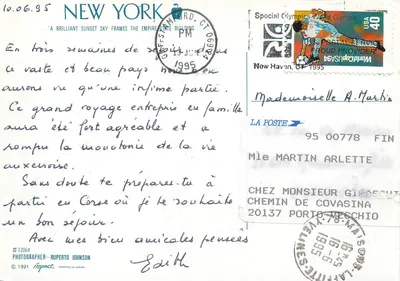 10.06.95
NEW YORK
"A BRILLIANT SUNSET SKY FRAMES THE EMPIRE STATE BUILDING"
En trois semaines de séjour dans
ce vaste et beau pays nous n'en
aurons vu qu'une infime partie.
Ce grand voyage entrepris en famille
aura été fort agréable et a
rompu la monotonie de la vie
auxerroise.
Sans doute te prépares-tu à
partir en Corse où je te souhaite
un bon séjour.
Avec mes bien amicales pensées
Edith
12064
PHOTOGRAPHER - RUPERTO JOHNSON
© 1991
STAMFORD, CT 06904
PM
1995
Special Olympics World Games
PROUD PROVIDER
New Haven, CT 1995
USA 40
WorldCupUSA94
Mademoiselle A. Martin
LA POSTE
95 00778 FIN
Mle MARTIN ARLETTE
CHEZ MONSIEUR
CHEMIN DE COVASINA
20137 PORTO-VECCHIO
78-MAISONS-LAFFITTE YVELINES
16H45
16-6
1995